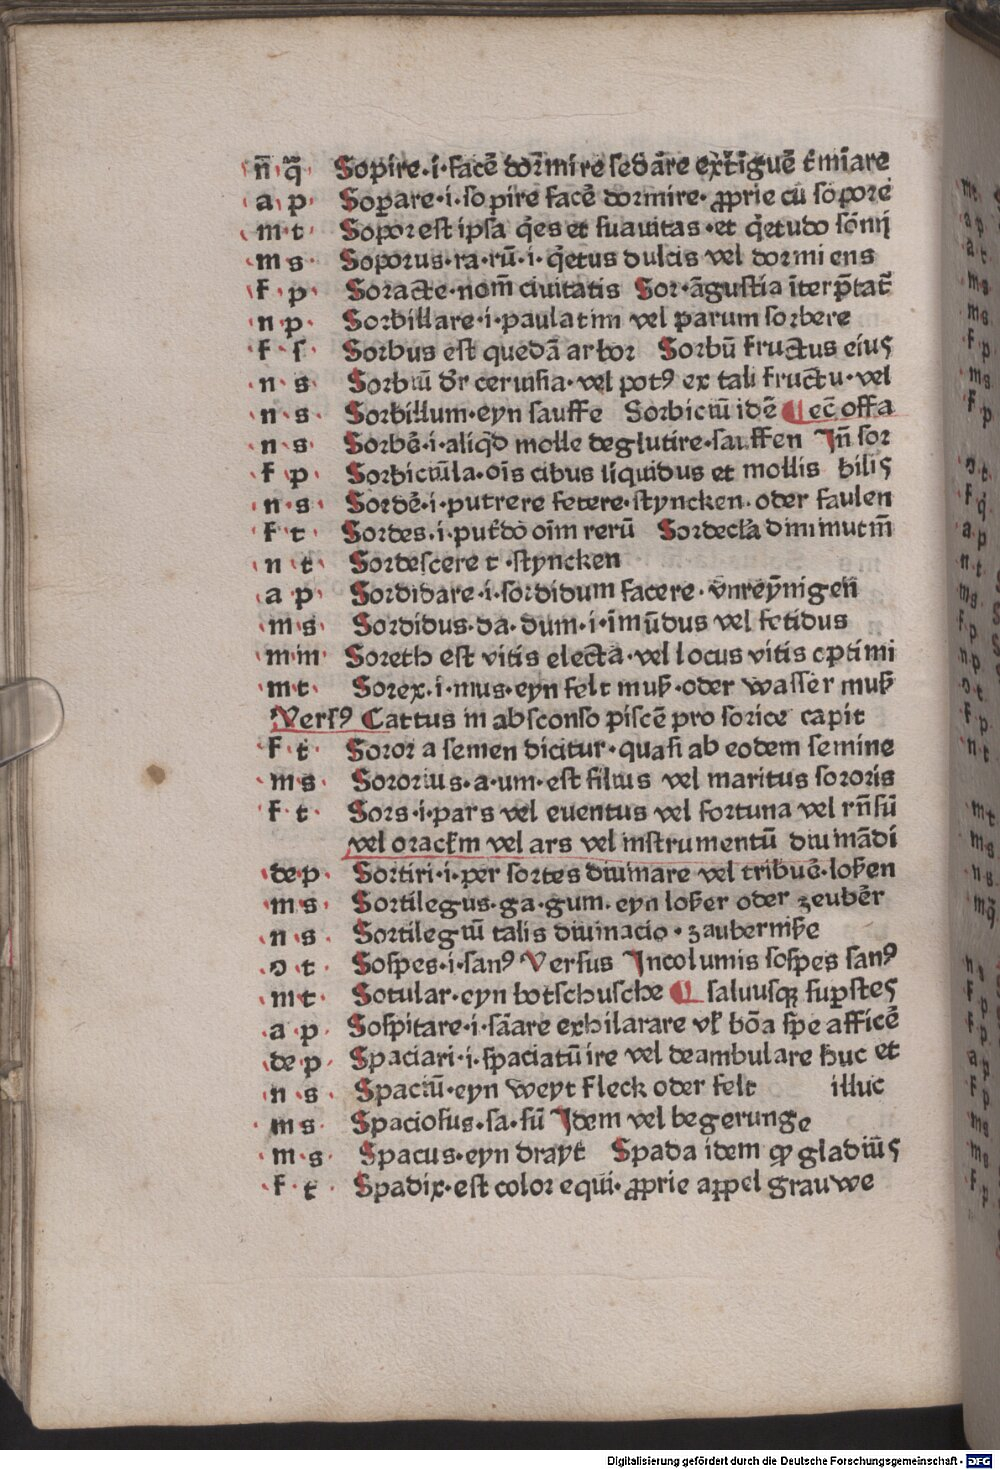 n̄ q̄ Sopire·i·facē dormire sedāre extīguē t̄mīare
a p Sopare·i·so pire facē dormire·ꝓprie cū sopore
m t Sopor est ipsa q̄es et suavitas·et q̄etudo sōnij
m s Soporus·ra·rū·i·q̄etus dulcis vel dormiens
f p Soracte·nom̄ civitatis Sor·āgustia īterp̄tat̄
n p Sorbillare·i·paulatim vel parum sorbere
f s Sorbus est quedā arbor Sorbū fructus eius
n s Sorbiū dr̄ cervisia·vel potꝰ ex tali fructu·vel
n s Sorbillum·eyn sauffe Sorbiciū idē ¶ ec̄ offa
n s Sorbē·i·aliqd̄ molle deglutire·sauffen In̄ sor
f p Sorbiciūla·oīs cibus liquidus et mollis bilis
n s Sordē·i·putrere fetere·styncken·oder faulen
f t Sordes·i·put̄do oīm rerū Sordecl̄a diminutiū
n t Sordescere t·styncken
a p Sordidare·i·sordidum facere·vnreynigen̄
m s Sordidus·da·dum·i·īmūdus vel fetidus
m m Soreth est vitis electa·vel locus vitis optimi
m t Sorex·i·mus·eyn felt muß·oder wasser muß
Versꝰ Cattus in absconso piscē pro sorice capit
f t Soror a semen dicitur·quasi ab eodem semine
m s Sororius·a·um·est filius vel maritus sororis
f t Sors·i·pars vel eventus vel fortuna vel rn̄sū
vel oracl̄m vel ars vel instrumentū diuināndi
de p Sortiri·i·per sortes diuinare vel tribuē·loßen
m s Sortilegus·ga·gum·eyn loßer oder zeubēr
n s Sortilegiū talis diuinacio·zaubernße
ɔ t Sospes·i·sanꝰ Versus Incolumis sospes sanꝰ
m t Sotular·eyn botschusche ¶ saluusqꝫ suꝑstes
a p Sospitare·i·sāare exhilarare vl̄ bōa spe afficē
de p Spaciari·i·spaciatū ire vel deambulare huc et
n s Spaciū·eyn weyt fleck oder felt illuc
m s Spaciosus·sa·sū Idem vel begerunge
m s Spacus·eyn drayt Spada idem qꝫ gladiūs
f t Spadix·est color equi·ꝓprie appel grauwe
Digitalisierung gefördert durch die Deutsche Forschungsgemeinschaft - DFG